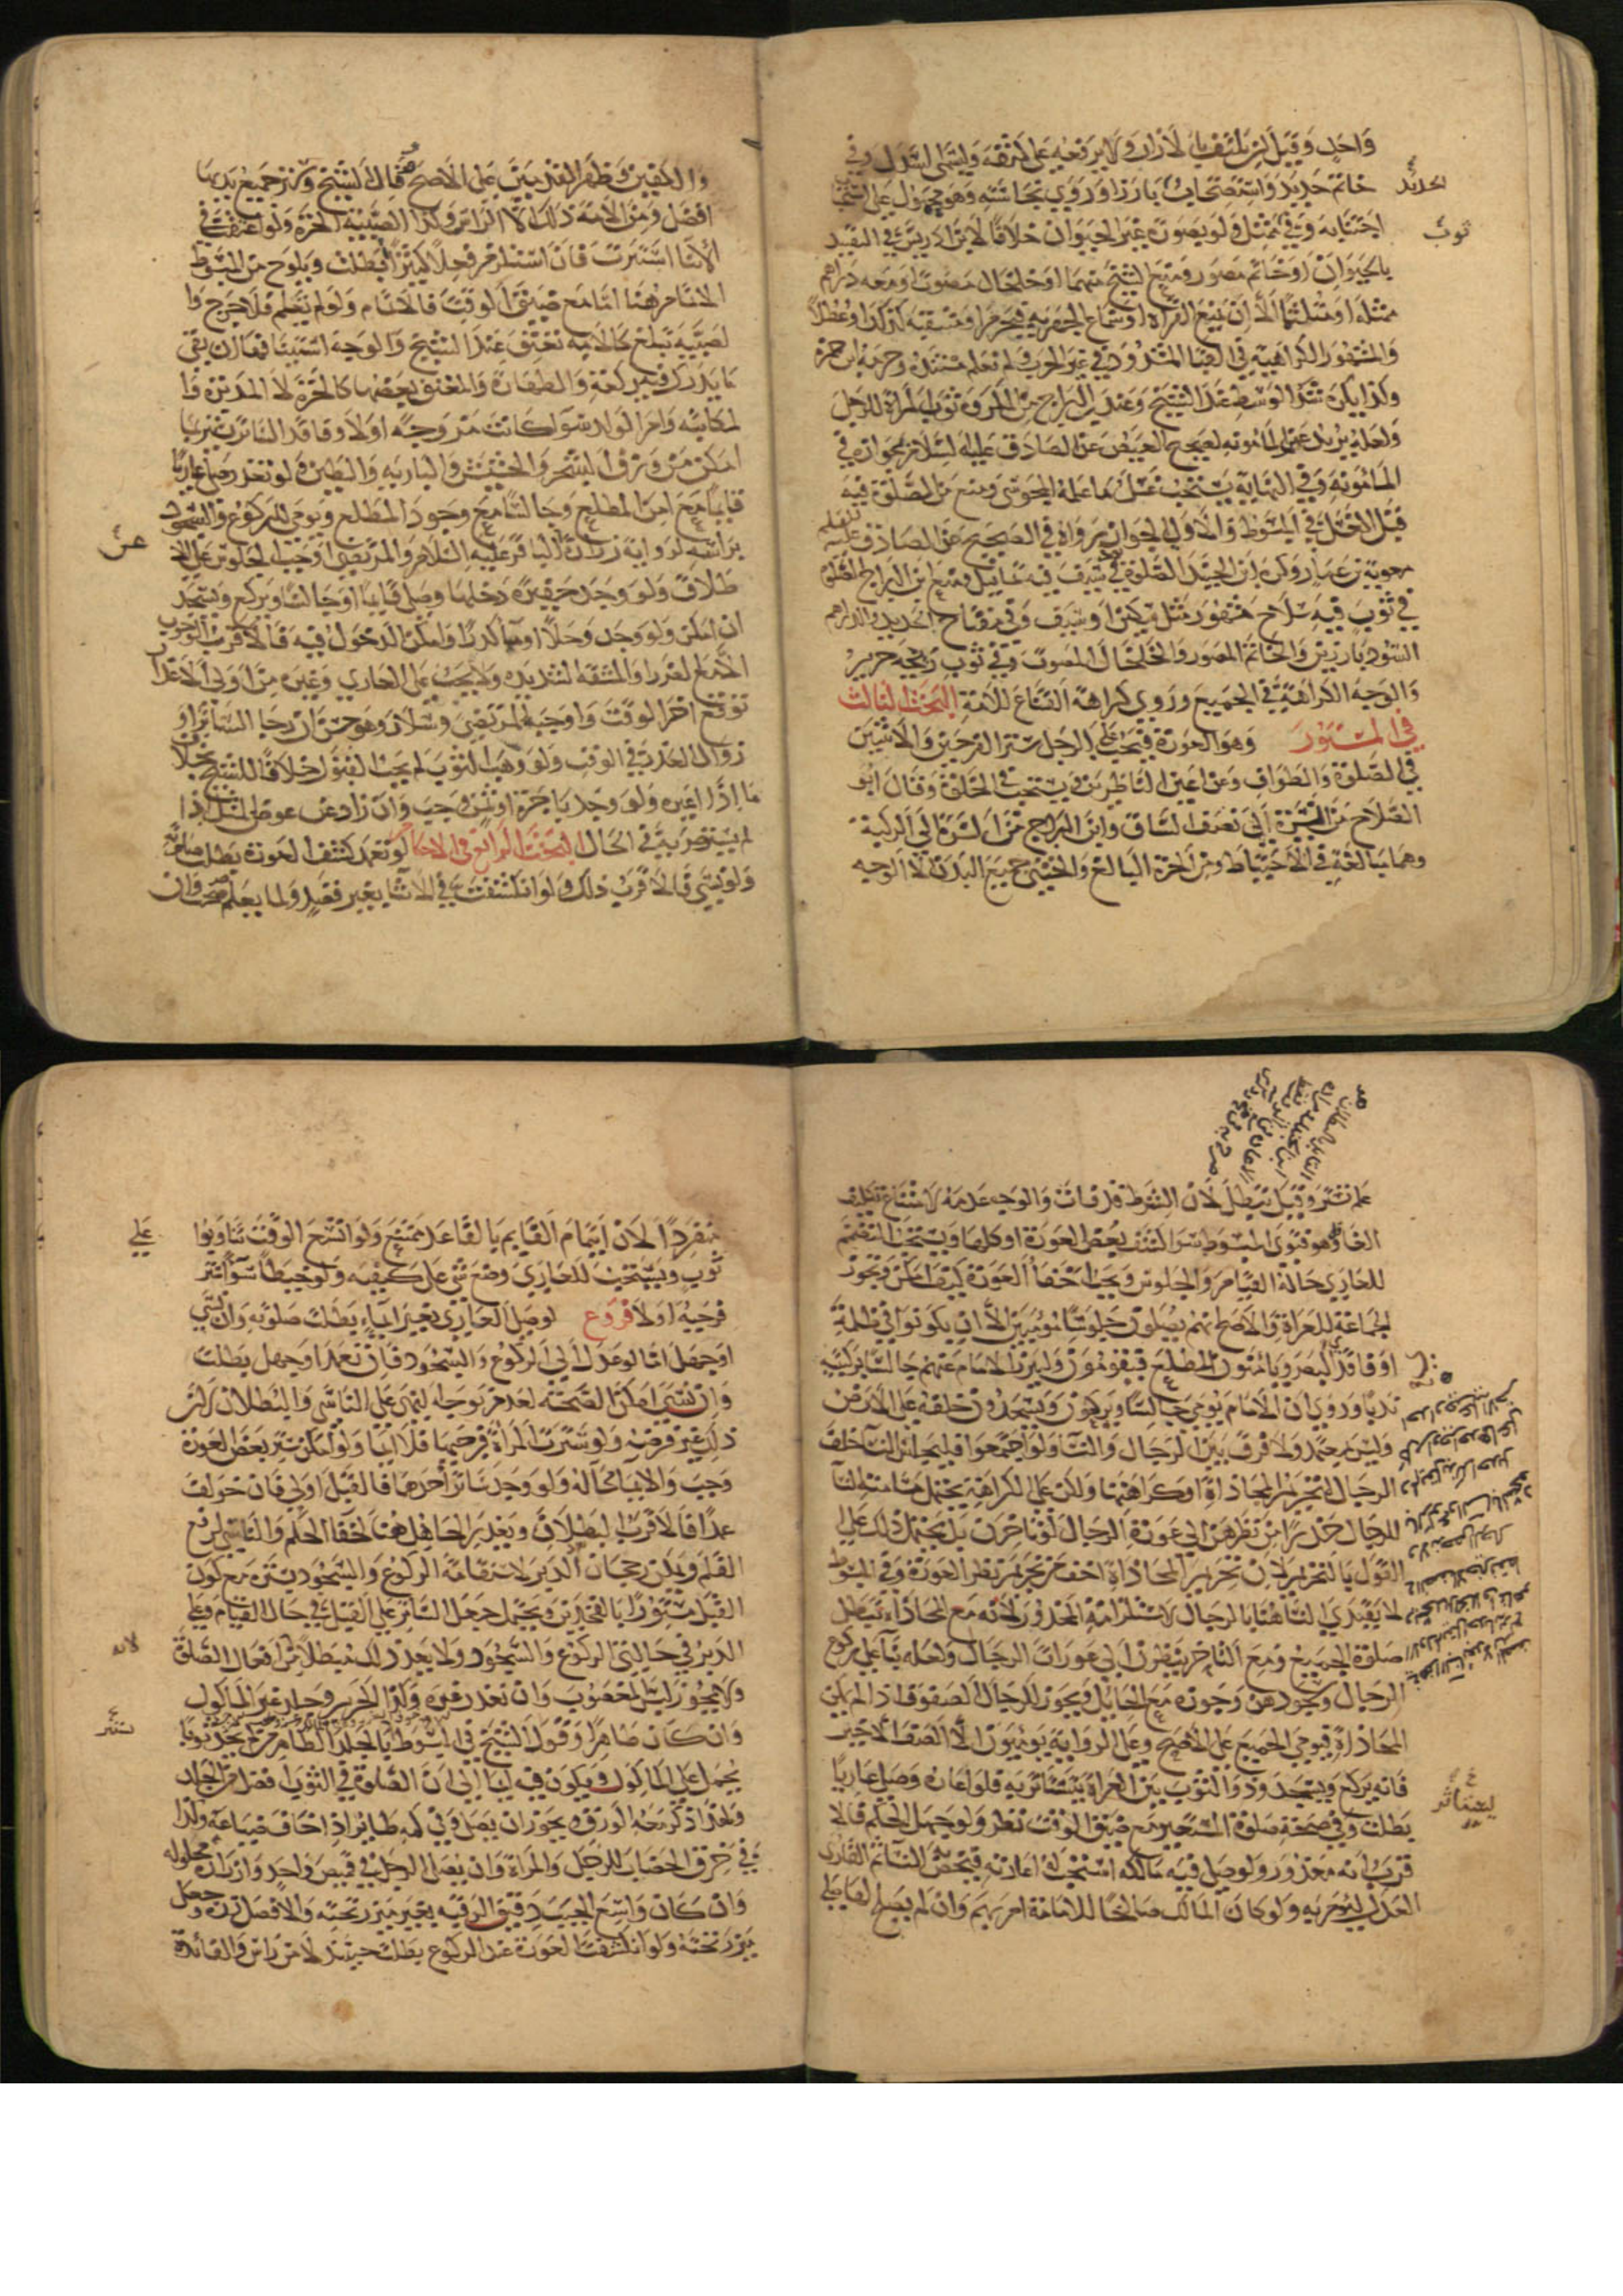 واحد وقيل ان يلتف بالازار ولا يرفعه على كتفه ويسمى السدل وفي
خاتم حديد واستصحابه بارزا وروي نجاسته وهو محمول على استحباب
اجتنابه وفي تمثل ولو بصورة غير الحيوان خلافا لابن ادريس في التقييد
بالحيوان او خاتم مصور ومنع الشيخ منهما او خلخال مصوت او معه دراهم
ممثلة او متلثما الا ان يمنع القراءة او سماع الجهرية فيحرم او منتقبة كذلك او معطلا
والمشهور الكراهية في القبا المشدود في غير الحرب ولم نعلم مستنده وحرمه ابن حمزة
وكذا يكره شد الوسط عند الشيخ وعند ابن البراج من المكروه ثوب المرأة للرجل
ولعله يريد غير المأمونة لصحيح العيص عن الصادق عليه السلام بجوازه في
المأمونة وفي النهاية يستحب غسل ما عمله المجوسي ومنع من الصلوة فيه
قبل الغسل في المبسوط والاولى الجواز لرواية في الصحيح عن الصادق عليه
معوية بن عمار وكره ابن الجنيد الصلوة في سيف فيه تماثيل ومنع ابن البراج الصلوة
في ثوب فيه سلاح مشهور مثل سكين او سيف وفي مفتاح الحديد والدراهم
السود بارزين والخاتم المصور والخلخال المصوت وفي ثوب ريحه حرير
والوجه الكراهة في الجميع وروي كراهة القناع للأمة البحث الثالث
في المستور وهو العورة فيجب على الرجل ستر الفرجين والانثيين
في الصلوة والطواف وعن اعين الناظرين ويستحب في الخلوة وقال ابو
الصلاح من السرة الى نصف الساق وابن البراج من السرة الى الركبة
وهما مبالغة في الاحتياط ومن الحرة البالغ والخنثى جميع البدن الا الوجه
الحديد
ثوب
والكفين وظهر القدمين على الاصح قال الشيخ وستر جميع بدنها
افضل ومن الامة ذلك الا الراس وكذا الصبية الحرة ولو اعتقت في
الاثنا استترت فان استلزم فعلا كثيرا بطلت ويلوح من المبسوط
الاتمام هنا اما مع ضيق الوقت فالاتمام ولو لم تعلم فلا حرج وا
لصبية تبلغ كالامة تعتق عند الشيخ والوجه استينافها ان بقي
ما يدرك فيه ركعة والطهارة والمعتق بعضها كالحرة لا المدبرة وا
لمكاتبة وام الولد سوا كانت مزوجة او لا وفاقد الساتر يستر بما
امكن من ورق الشجر والحشيش والبارية والطين ولو تعذر صلى عاريا
قايما مع امن المطلع وجالسا مع وجود المطلع ويومي للركوع والسجود
براسه لرواية زرارة عن الباقر عليه السلام والمرتضى اوجب الجلوس على الا
طلاق ولو وجد حفيرة دخلها وصلى قايما او جالسا ويركع ويسجد
ان امكن ولو وجد وحلا او ماء كدرا وامكن الدخول فيه فالاقرب الوجوب
الا مع الضرر او المشقة الشديدة ولا يجب على العاري وغيره من اولي الاعذار
توقع اخر الوقت واوجبه المرتضى وسلار وهو حسن ان رجا الساتر او
زوال العذر في الوقت ولو وهب الثوب لم يجب القبول خلافا للشيخ بخلاف
ما اذا اعيره ولو وجد باجرة او ثمن وجب وان زاد عن عوض المثل اذا
لم يستضر به في الحال البحث الرابع في الاحكام لو تعمد كشف العورة بطلت صلوته
ولو نسي فالاقرب ذلك ولو انكشفت في الاثنا بغير فعله ولما يعلم صحت وان
عن
علم تستر وقيل تبطل لان الشرط قد فات والوجه عدمه لامتناع تكليف
الغافل وهو فتوى المبسوط سوا انكشف بعض العورة او كلها ويستحب التعمم
للعاري حالة القيام والجلوس ويجب اخفا العورة كيف امكن ويجوز
الجماعة للعراة والاصح انهم يصلون جلوسا مؤميين الا ان يكونوا في ظلمة
او فاقدي البصر ويامنون المطلع فيقومون وليبرز الامام عنهم جالسا بركبتيه
ندبا وروي ان الامام يومي جالسا ويركعون ويسجدون خلفه على الارض
وليس بمعتمد ولا فرق بين الرجال والنسا ولو اجتمعوا فليجلس النسا خلف
الرجال لتحريم المحاذاة او كراهتها ولكن على الكراهة يحتمل
للرجال حذرا من نظرهن الى عورة الرجال لو تاخرن بل يحتمل ذلك على
القول بالتحريم لان تحريم المحاذاة اخف من تحريم نظر العورة وفي المبسوط
لا يقتدي النسا هنا بالرجال لاستلزامه المحذور لانه مع المحاذاة تبطل
صلوة الجميع ومع التاخر ينظرن الى عورات الرجال ولعله بنا على ركوع
الرجال وسجودهن وجوزه مع الحايل ويجوز للرجال الصفوف اذا لم يكن
المحاذاة فيومي الجميع على الاصح وعلى الرواية يومئون الا الصف الاخير
فانه يركع ويسجد وذو الثوب بين العراة يستاثر به فلو اعاره وصلى عاريا
بطلت وفي صحة صلوة المستعير مع ضيق الوقت نظر ولو جهل الحكم فالا
قرب انه معذور ولو صلى فيه مالكه استحب له اعارته فيخص النسا ثم القاري
العدل ليؤم به ولو كان المالك صالحا للامامة ام بهم وان لم يصلح
يستاثر
منفردا لان ايتمام القايم بالقاعد ممتنع ولو اتسع الوقت تناوبوا
ثوب ويستحب للعاري وضع شي على كتفيه ولو خيطا سوا ستر
فرجيه او لا فروع لو صلى العاري بغير ايماء بطلت صلوته وان نسي
او جهل اما لو عدل الى الركوع والسجود فان تعمد او جهل بطلت
وان نسي امكن الصحة لعدم توجه النهي على الناسي والبطلان لان
ذلك غير فرضه ولو سترت المراة فرجيها فلا ايما ولو امكن ستر بعض العورة
وجب والايما بحاله ولو وجد ساتر احدهما فالقبل اولى فان خولف
عمدا فالاقرب البطلان ويعذر الجاهل هنا لخفا الحكم والناسي لرفع
القلم ويمكن رجحان الدبر لاستقامة الركوع والسجود بستره مع كون
القبل مستورا بالفخذين ويحتمل جعل الساتر على القبل في حال القيام وعلى
الدبر في حالتي الركوع والسجود ولا يعد ذلك مبطلا من افعال الصلوة
ولا يجوز لبس المغصوب وان تعذر غيره وكذا الحرير وجلد غير الماكول
وان كان طاهرا وقول الشيخ في المبسوط بالجلد الطاهر متى لم يجد ثوبا
يحمل على الماكول ويكون فيه ايما الى ان الصلوة في الثوب افضل من الجلد
ولهذا ذكر معه الورق ويجوز ان يصلي وفي كمه طاير اذا خاف ضياعه وكذا
في خرق الخضاب للرجل والمراة وان يصلي الرجل في قميص واحد وازراره محلوله
وان كان واسع الجيب دقيق الرقبة بغير مئزر تحته والافضل زره وجعل
مئزر تحته ولو انكشفت العورة عند الركوع بطلت حينئذ لا من راس والفائدة
على
لانه
ستر